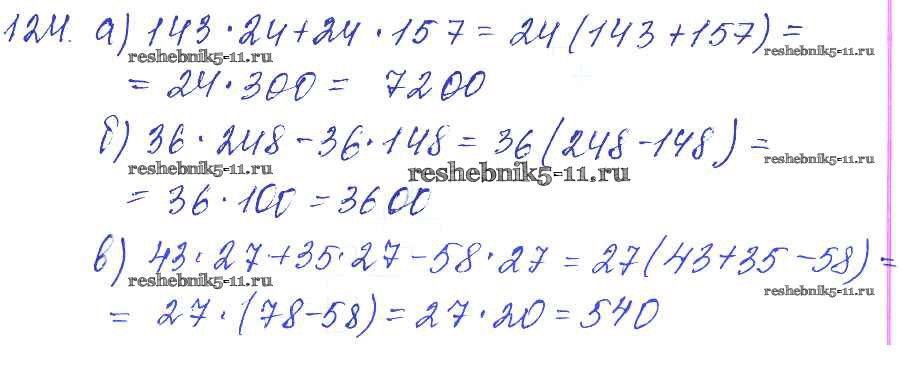 124. а) 143 · 24 + 24 · 157 = 24 (143 + 157) =
reshebnik5-11.ru reshebnik5-11.ru
= 24 · 300 = 7200
б) 36 · 248 - 36 · 148 = 36 (248 - 148) =
reshebnik5-11.ru reshebnik5-11.ru reshebnik5-11.ru
= 36 · 100 = 3600
в) 43 · 27 + 35 · 27 - 58 · 27 = 27 (43 + 35 - 58) =
reshebnik5-11.ru reshebnik5-11.ru
= 27 · (78 - 58) = 27 · 20 = 540